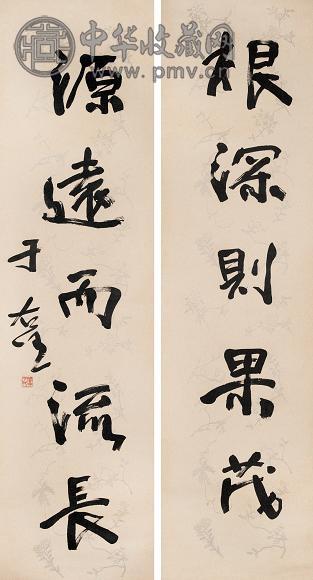 中华收藏网
www.pmv.cn
根深则果茂
源遠而流長
于右任